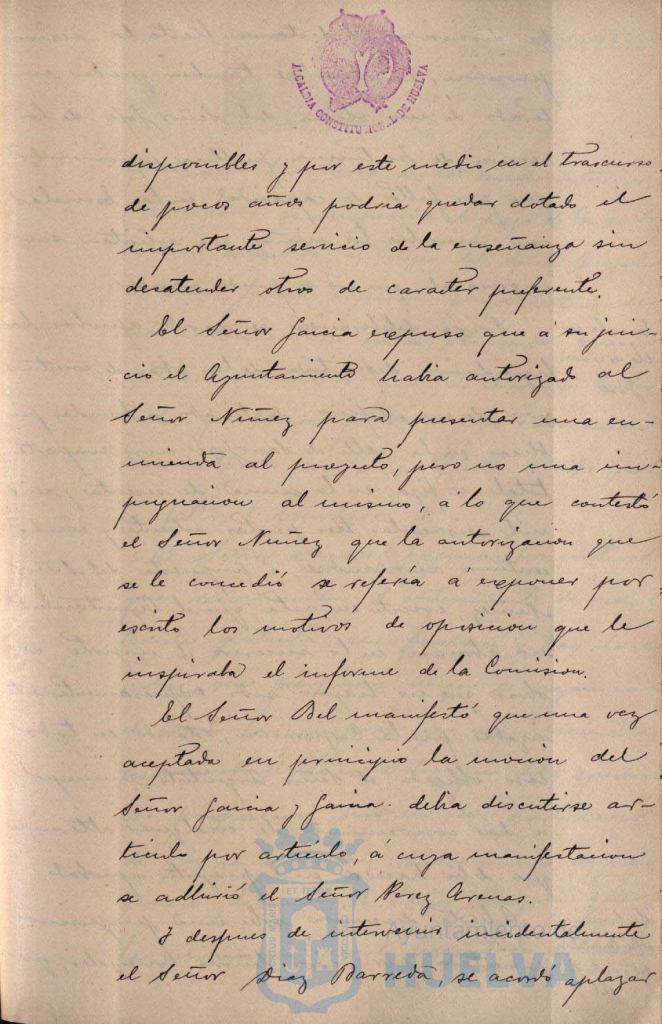 ALCALDIA CONSTITUCIONAL DE HUELVA
disponibles y por este medio en el trascurso
de pocos años podria quedar dotado el
importante servicio de la enseñanza sin
desatender otros de caracter preferente.
El Señor Garcia expuso que á su jui-
cio el Ayuntamiento habia autorizado al
Señor Nuñez para presentar una en-
mienda al proyecto, pero no una im-
pugnacion al mismo, á lo que contestó
el Señor Nuñez que la autorizacion que
se le concedió se refería á exponer por
escrito los motivos de oposicion que le
inspiraba el informe de la Comision.
El Señor Bel manifestó que una vez
aceptada en principio la mocion del
Señor Garcia y Garcia debia discutirse ar-
ticulo por articulo, á cuya manifestacion
se adhirió el Señor Perez Arenas.
Y despues de intervenir incidentalmente
el Señor Diaz Barreda, se acordó aplazar
HUELVA